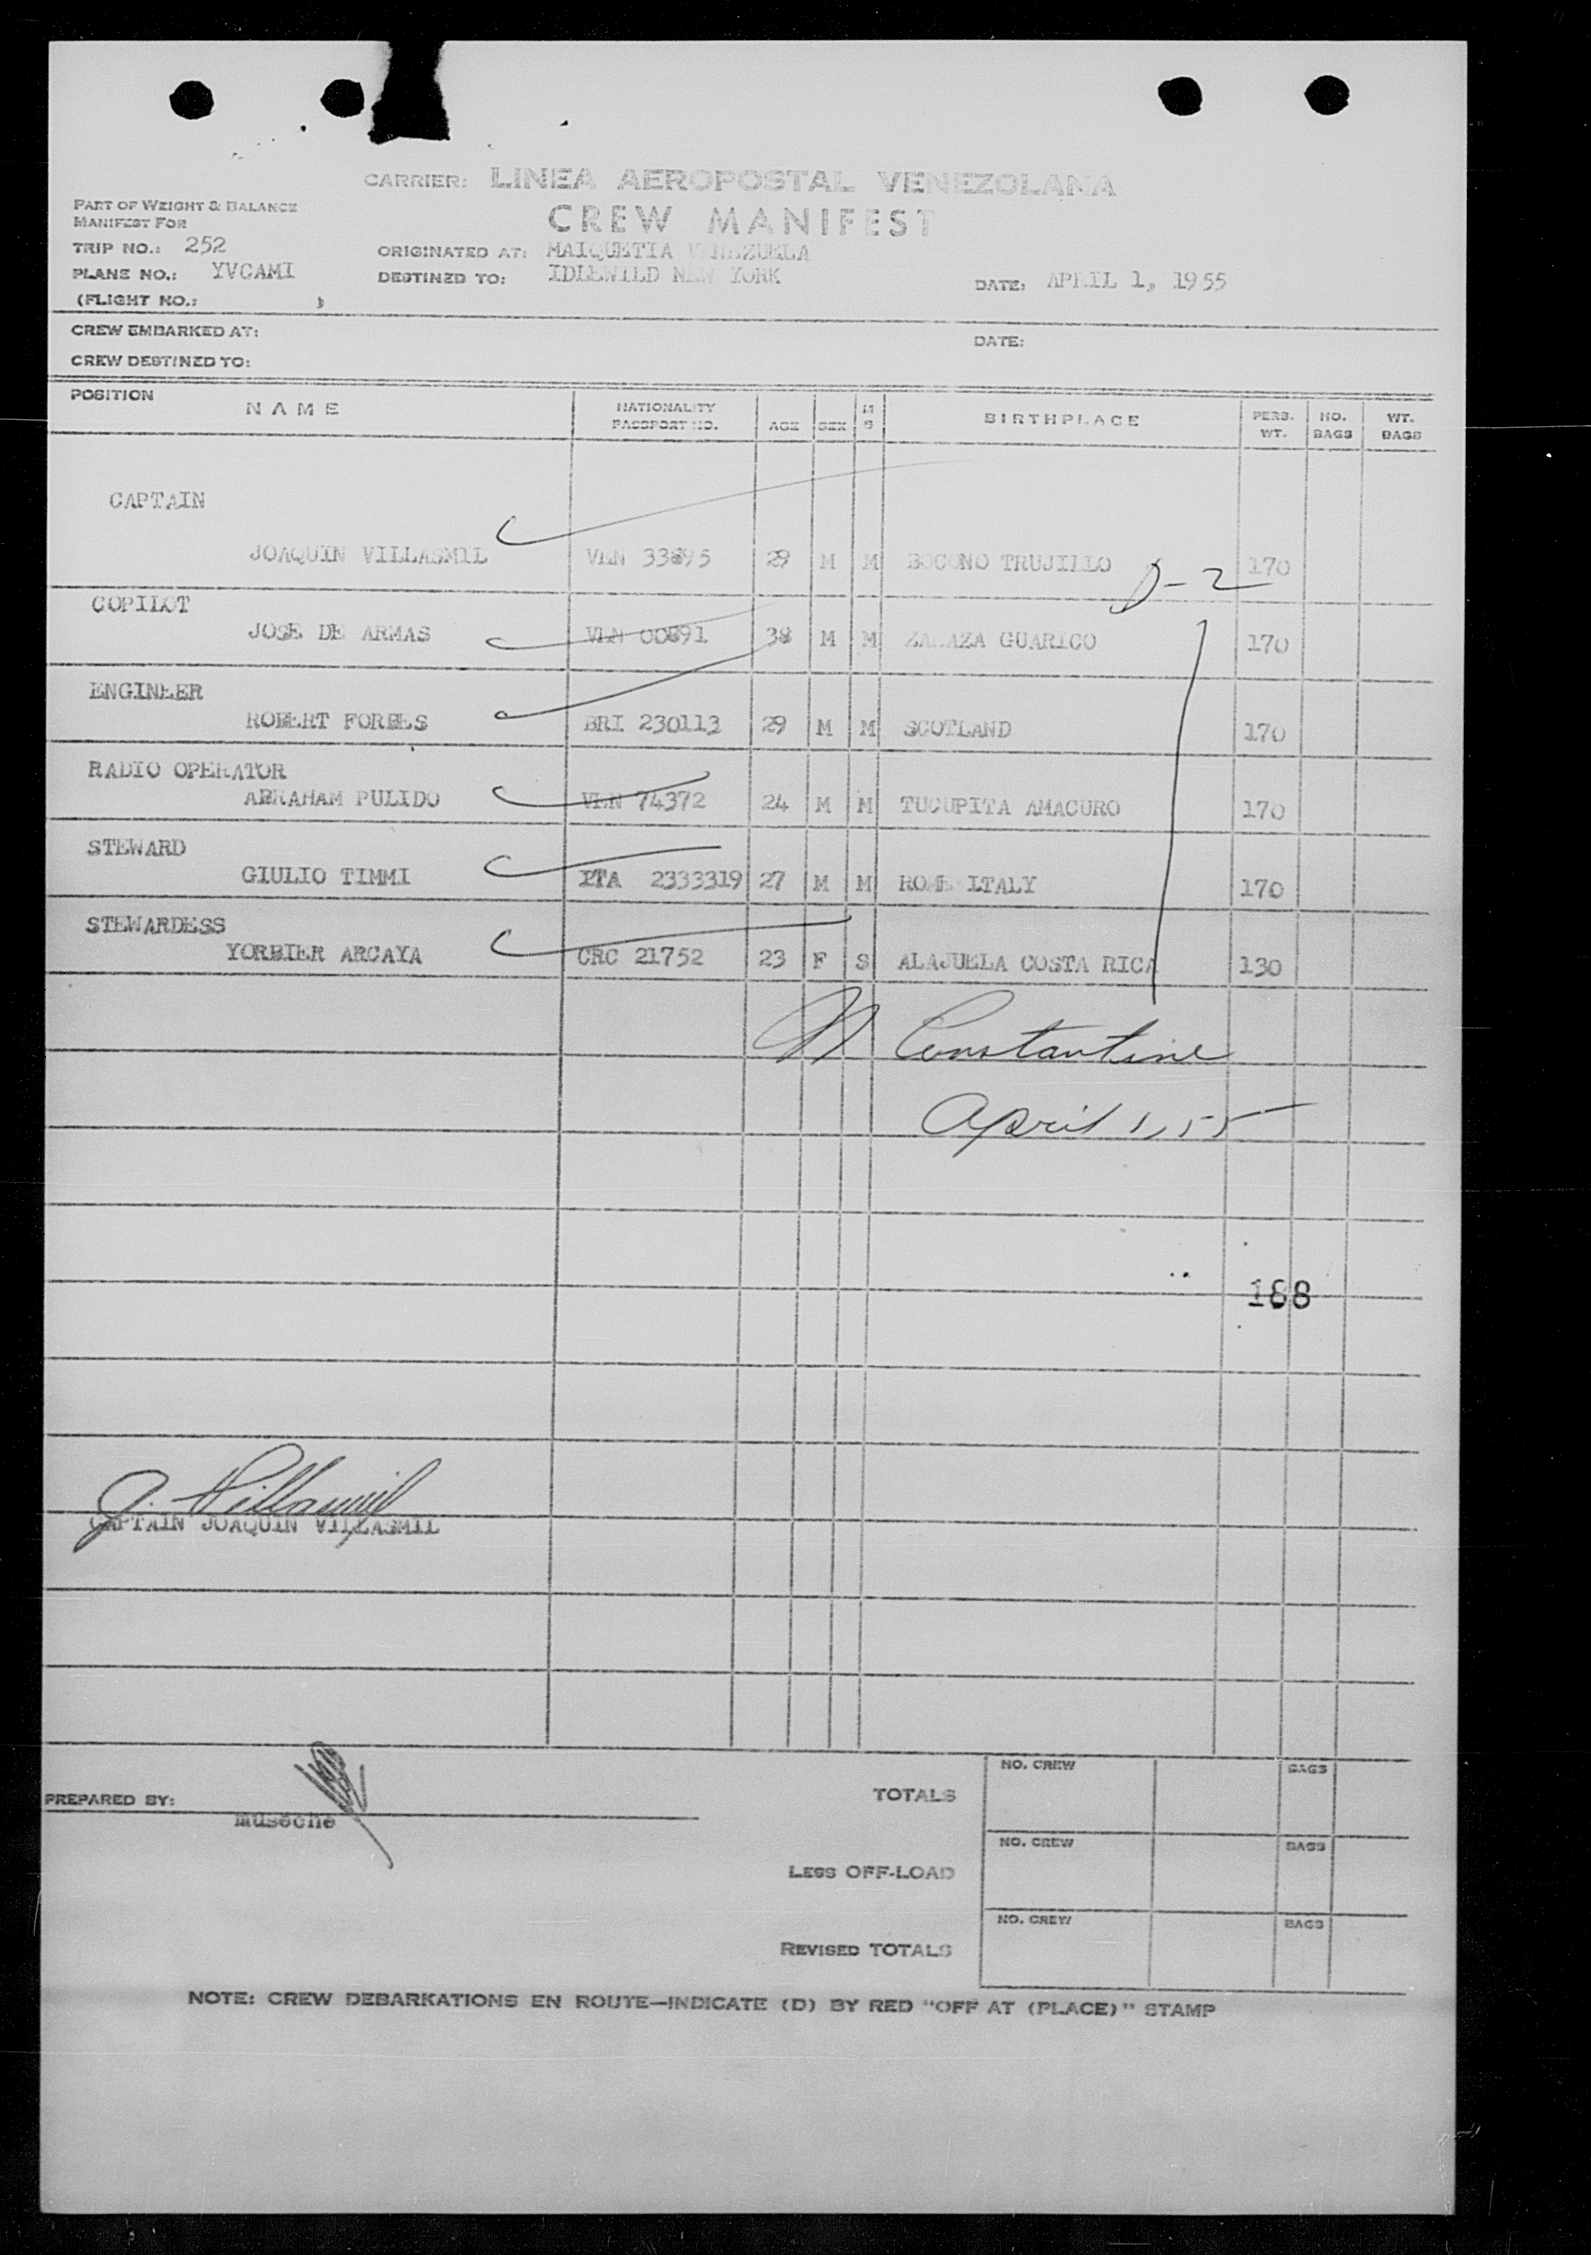 CARRIER: LINEA AEROPOSTAL VENEZOLANA
PART OF WEIGHT & BALANCE
MANIFEST FOR
CREW MANIFEST
TRIP NO.: 252
ORIGINATED AT: MAIQUETIA VENEZUELA
PLANE NO.: YVCAMI
DESTINED TO: IDLEWILD NEW YORK
DATE: APRIL 1, 1955
(FLIGHT NO.: )
CREW EMBARKED AT:
DATE:
CREW DESTINED TO:
POSITION NAME NATIONALITY PASSPORT NO. AGE SEX M S BIRTHPLACE PERS. WT. NO. BAGS WT. BAGS
CAPTAIN
JOAQUIN VILLASMIL VEN 33895 29 M M BOCONO TRUJILLO 170
D-2
COPILOT
JOSE DE ARMAS VEN 00891 38 M M ZARAZA GUARICO 170
ENGINEER
ROBERT FORBES BRI 230113 29 M M SCOTLAND 170
RADIO OPERATOR
ABRAHAM PULIDO VEN 74372 24 M M TUCUPITA AMACURO 170
STEWARD
GIULIO TIMMI ITA 2333319 27 M M ROME ITALY 170
STEWARDESS
YORBIER ARCAYA CRC 21752 23 F S ALAJUELA COSTA RICA 130
N Constantine
April 1, 55
188
J. Villasmil
CAPTAIN JOAQUIN VILLASMIL
PREPARED BY: museche
TOTALS NO. CREW BAGS
LESS OFF-LOAD NO. CREW BAGS
REVISED TOTALS NO. CREW BAGS
NOTE: CREW DEBARKATIONS EN ROUTE—INDICATE (D) BY RED "OFF AT (PLACE)" STAMP